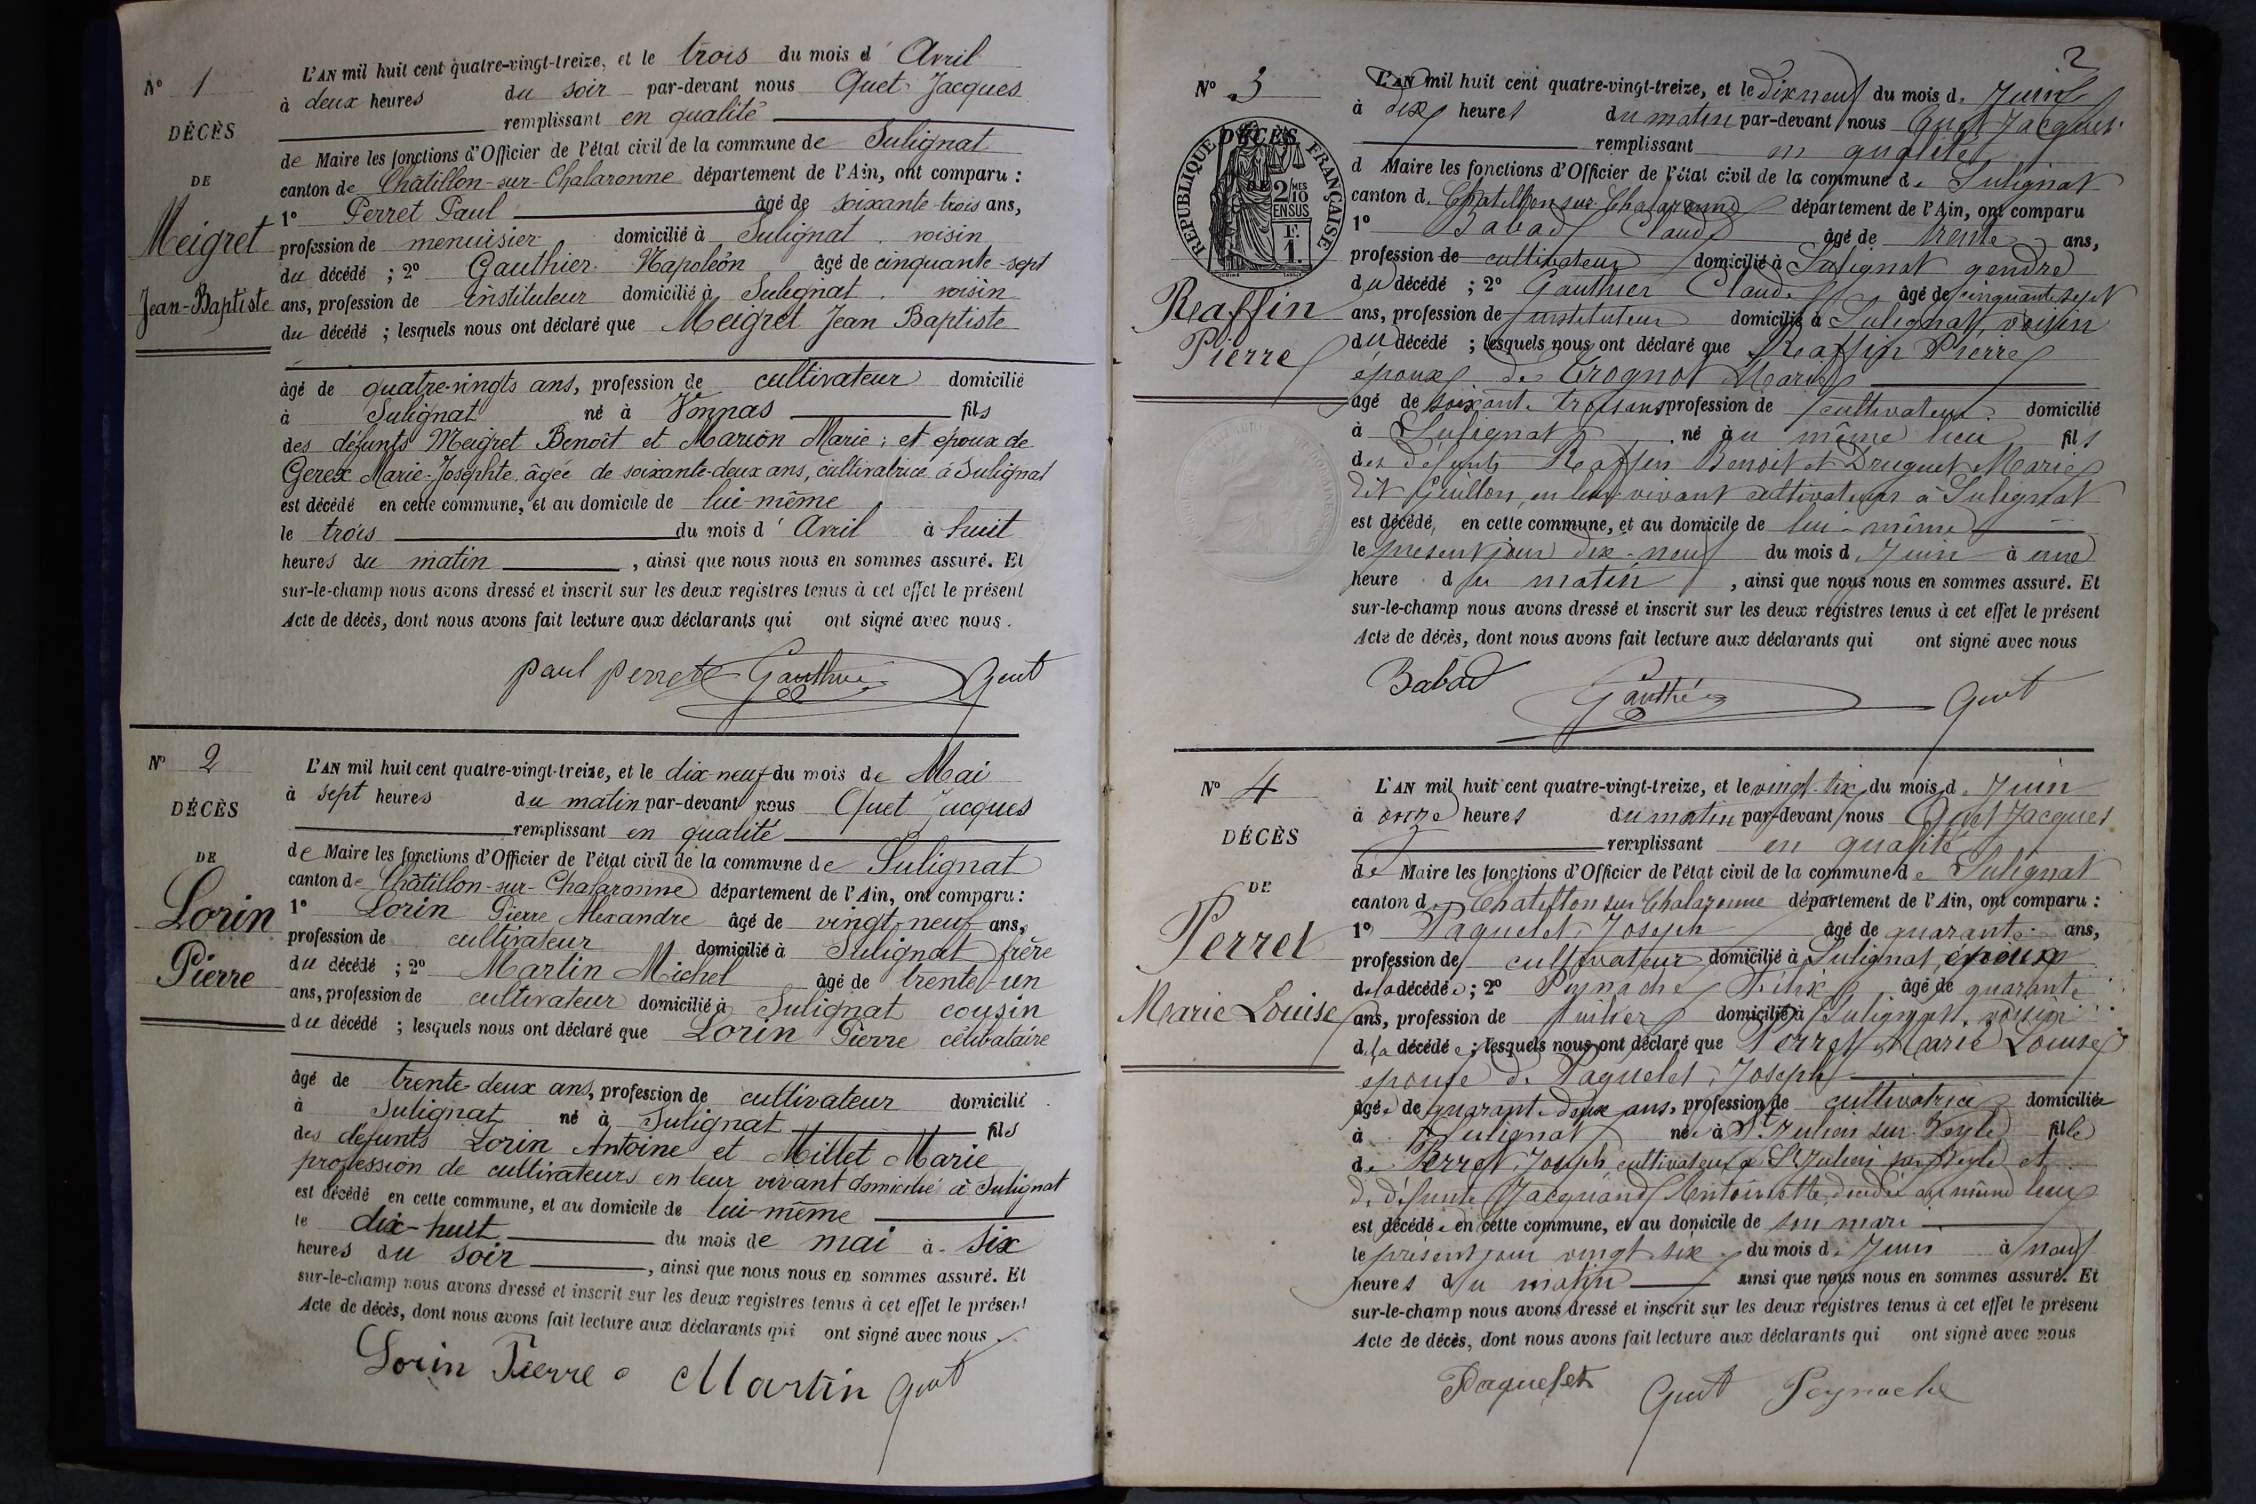 N° 1
DÉCÈS
DE
Meigret
Jean-Baptiste
L'AN mil huit cent quatre-vingt-treize, et le trois du mois d'Avril
à deux heures du soir par-devant nous Quet Jacques
remplissant en qualité
de Maire les fonctions d'Officier de l'état civil de la commune de Sulignat
canton de Châtillon-sur-Chalaronne département de l'Ain, ont comparu :
1° Perret Paul âgé de soixante-trois ans,
profession de menuisier domicilié à Sulignat voisin
du décédé ; 2° Gauthier Napoléon âgé de cinquante-sept
ans, profession de instituteur domicilié à Sulignat voisin
du décédé ; lesquels nous ont déclaré que Meigret Jean Baptiste
âgé de quatre-vingts ans, profession de cultivateur domicilié
à Sulignat né à Vonnas fils
des défunts Meigret Benoît et Marion Marie ; et époux de
Gerex Marie-Josephte âgée de soixante-deux ans, cultivatrice à Sulignat
est décédé en cette commune, et au domicile de lui-même
le trois du mois d'Avril à huit
heures du matin , ainsi que nous nous en sommes assuré. Et
sur-le-champ nous avons dressé et inscrit sur les deux registres tenus à cet effet le présent
Acte de décès, dont nous avons fait lecture aux déclarants qui ont signé avec nous.
paul perret Gauthier Quet
N° 2
DÉCÈS
DE
Lorin
Pierre
L'AN mil huit cent quatre-vingt-treize, et le dix-neuf du mois de Mai
à sept heures du matin par-devant nous Quet Jacques
remplissant en qualité
de Maire les fonctions d'Officier de l'état civil de la commune de Sulignat
canton de Châtillon-sur-Chalaronne département de l'Ain, ont comparu :
1° Lorin Pierre Alexandre âgé de vingt-neuf ans,
profession de cultivateur domicilié à Sulignat frère
du décédé ; 2° Martin Michel âgé de trente-un
ans, profession de cultivateur domicilié à Sulignat cousin
du décédé ; lesquels nous ont déclaré que Lorin Pierre célibataire
âgé de trente-deux ans, profession de cultivateur domicilié
à Sulignat né à Sulignat fils
des défunts Lorin Antoine et Millet Marie
profession de cultivateurs en leur vivant domicilié à Sulignat
est décédé en cette commune, et au domicile de lui-même
le dix-huit du mois de mai à six
heures du soir , ainsi que nous nous en sommes assuré. Et
sur-le-champ nous avons dressé et inscrit sur les deux registres tenus à cet effet le présent
Acte de décès, dont nous avons fait lecture aux déclarants qui ont signé avec nous
Lorin Pierre a Martin Quet
2
N° 3
DÉCÈS
RÉPUBLIQUE FRANÇAISE
2/10 MES
EN SUS
F.
1.
Reaffin
Pierre
L'AN mil huit cent quatre-vingt-treize, et le dix neuf du mois de Juin
à dix heures du matin par-devant nous Quet Jacques
remplissant en qualité
d Maire les fonctions d'Officier de l'état civil de la commune de Sulignat
canton de Chatillon sur Chalaronne département de l'Ain, ont comparu
1° Babad Claude âgé de trente ans,
profession de cultivateur domicilié à Sulignat gendre
du décédé ; 2° Gauthier Claude âgé de cinquante sept
ans, profession de instituteur domicilié à Sulignat, voisin
du décédé ; lesquels nous ont déclaré que Reaffin Pierre
époux de Trognot Marie
âgé de soixante trois ans profession de cultivateur domicilié
à Sulignat né au même lieu fils
des défunts Reaffin Benoit et Druguet Marie
dit Guillon, en leur vivant cultivateurs à Sulignat
est décédé, en cette commune, et au domicile de lui-même
le présent jour dix-neuf du mois de Juin à une
heure du matin , ainsi que nous nous en sommes assuré. Et
sur-le-champ nous avons dressé et inscrit sur les deux registres tenus à cet effet le présent
Acte de décès, dont nous avons fait lecture aux déclarants qui ont signé avec nous
Babad Gauthier Quet
N° 4
DÉCÈS
DE
Perret
Marie Louise
L'AN mil huit cent quatre-vingt-treize, et le vingt-six du mois de Juin
à onze heures du matin par-devant nous Quet Jacques
remplissant en qualité
de Maire les fonctions d'Officier de l'état civil de la commune de Sulignat
canton de Chatillon sur Chalaronne département de l'Ain, ont comparu :
1° Paquelet Joseph âgé de quarante ans,
profession de cultivateur domicilié à Sulignat, époux
de la décédée ; 2° Peynache Félix âgé de quarante
ans, profession de domicilié à Sulignat, voisin
de la décédée ; lesquels nous ont déclaré que Perret Marie Louise
épouse de Paquelet Joseph
âgée de quarante deux ans, profession de cultivatrice domiciliée
à Sulignat née à St Julien sur Veyle fille
de Perret Joseph cultivateur à St Julien sur Veyle et
de défunte Jacquand Antoinette décédée au même lieu
est décédée en cette commune, et au domicile de son mari
le présent jour vingt six du mois de Juin à neuf
heures du matin ainsi que nous nous en sommes assuré. Et
sur-le-champ nous avons dressé et inscrit sur les deux registres tenus à cet effet le présent
Acte de décès, dont nous avons fait lecture aux déclarants qui ont signé avec nous
Paquelet Quet Peynache